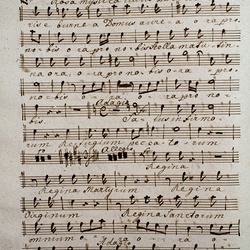 Rosa mystica
ris eburnea Domus aurea ora pro
nobis ora pro nobis Stella matuti
na ora, ora pro nobis ora pro
nobis ora pro no
Adagio
bis. Salus infirmo
rum Refugium peccatorum
Allegro
Regina
Regina Martyrum Regina
Virginum Regina Sanctorum
omnium ora
Adagio